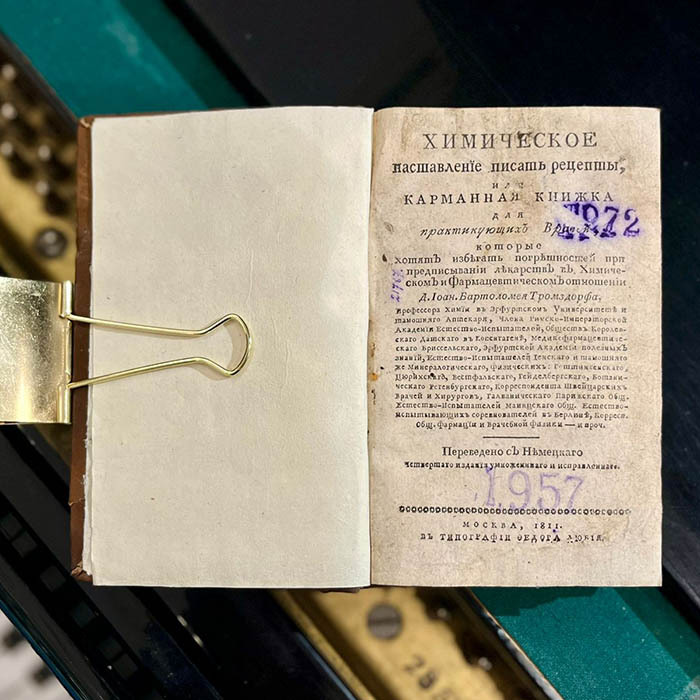 ХИМИЧЕСКОЕ
наставленїе писать рецепты,
или
КАРМАННАЯ КНИЖКА
для
практикующихъ
1972
которые
хотятъ избѣгать погрѣшностей при
предписыванїи лѣкарствъ въ Химиче-
скомъ и Фармацевтическомъ отношенїи
Д. Іоан. Бартоломея Тромздорфа,
Профессора Химїи въ Эрфуртскомъ Университетѣ и
тамошняго Аптекаря, Члена Римско-Императорской
Академїи Естество-Испытателей, Обществъ Королев-
скаго Датскаго въ Копенгагенѣ, Медикофармацевтиче-
скаго Бриссельскаго, Эрфуртской Академїи полезныхъ
знанїй, Естество-Испытателей Іенскаго и тамошняго
же Минералогическаго, Физическихъ: Геттингенскаго,
Цюрихскаго, Вестфальскаго, Гейдельбергскаго, Ботани-
ческаго Регенбургскаго, Корреспондента Швейцарскихъ
Врачей и Хирурговъ, Галваническаго Парижскаго Общ.
Естество-Испытателей Маинцскаго Общ. Естество-
испытывающихъ соревнователей въ Берлинѣ, Корресп.
Общ. Фармацїи и Врачебной Физики — и проч.
Переведено съ Нѣмецкаго
четвертаго изданїя умноженнаго и исправленнаго.
1957
МОСКВА, 1811.
ВЪ ТИПОГРАФЇИ ѲЕДОРА ЛЮБІЯ.
288